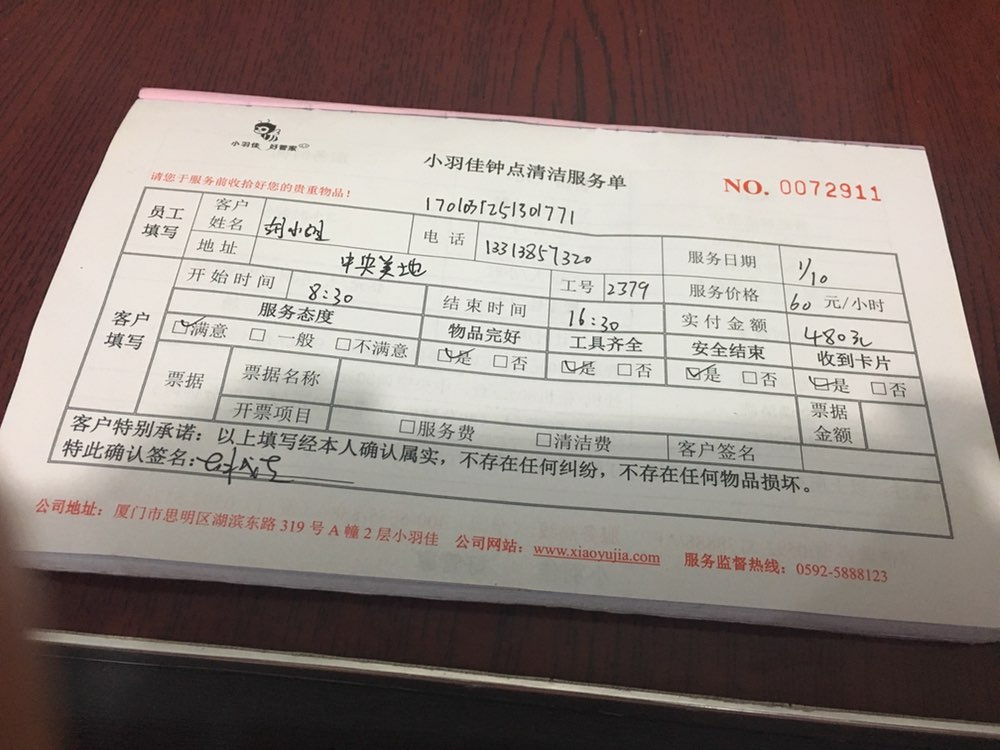 小羽佳 好管家
小羽佳钟点清洁服务单
NO. 0072911
请您于服务前收拾好您的贵重物品！
员工填写 客户姓名 胡小姐 电话 13313857320 服务日期 1/10
地址 中央美地 工号 2379 服务价格 60 元/小时
客户填写 开始时间 8:30 结束时间 16:30 实付金额 480元
服务态度 物品完好 工具齐全 安全结束 收到卡片
☑满意 □一般 □不满意 ☑是 □否 ☑是 □否 ☑是 □否 ☑是 □否
票据 票据名称 票据金额
开票项目 □服务费 □清洁费 客户签名
客户特别承诺：以上填写经本人确认属实，不存在任何纠纷，不存在任何物品损坏。
特此确认签名：
公司地址：厦门市思明区湖滨东路 319 号 A 幢 2 层小羽佳 公司网站：www.xiaoyujia.com 服务监督热线：0592-5888123